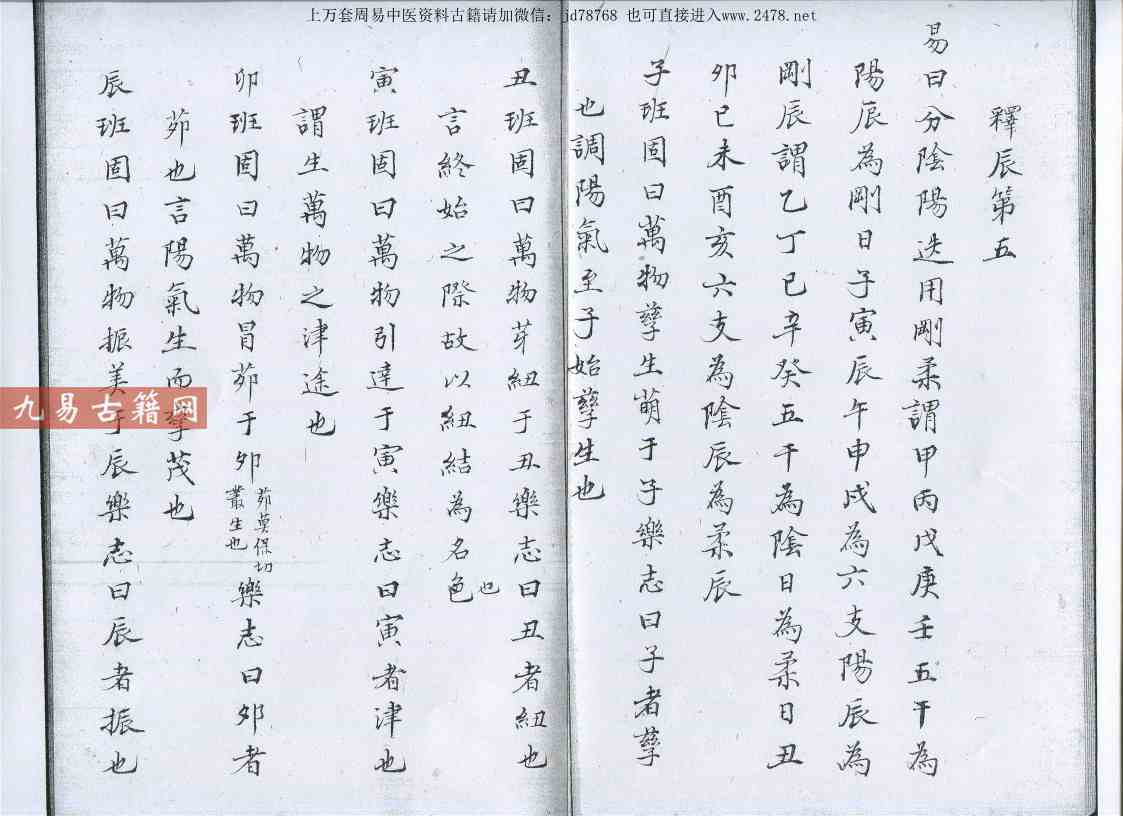 上万套周易中医资料古籍请加微信：jd78768 也可直接进入www.2478.net
釋辰第五
易曰分陰陽迭用剛柔謂甲丙戊庚壬五干為
陽辰為剛日子寅辰午申戌為六支陽辰為
剛辰謂乙丁己辛癸五干為陰日為柔日丑
夘巳未酉亥六支為陰辰為柔辰
子班固曰萬物孳生萌于子樂志曰子者孳
也調陽氣至子始孳生也
丑班固曰萬物芽紐于丑樂志曰丑者紐也
言終始之際故以紐結為名色也
寅班固曰萬物引達于寅樂志曰寅者津也
謂生萬物之津途也
卯班固曰萬物冒茆于夘茆莫保切叢生也樂志曰夘者
茆也言陽氣生而孳茂也
辰班固曰萬物振美于辰樂志曰辰者振也
九易古籍网